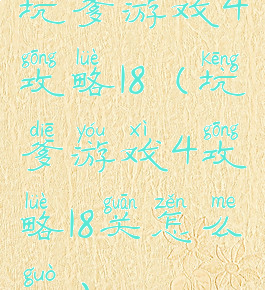 坑爹游戏4
gōng lüè kēng
攻略18（坑
diē yóu xì gōng
爹游戏4攻
lüè guān zěn me
略18关怎么
guò